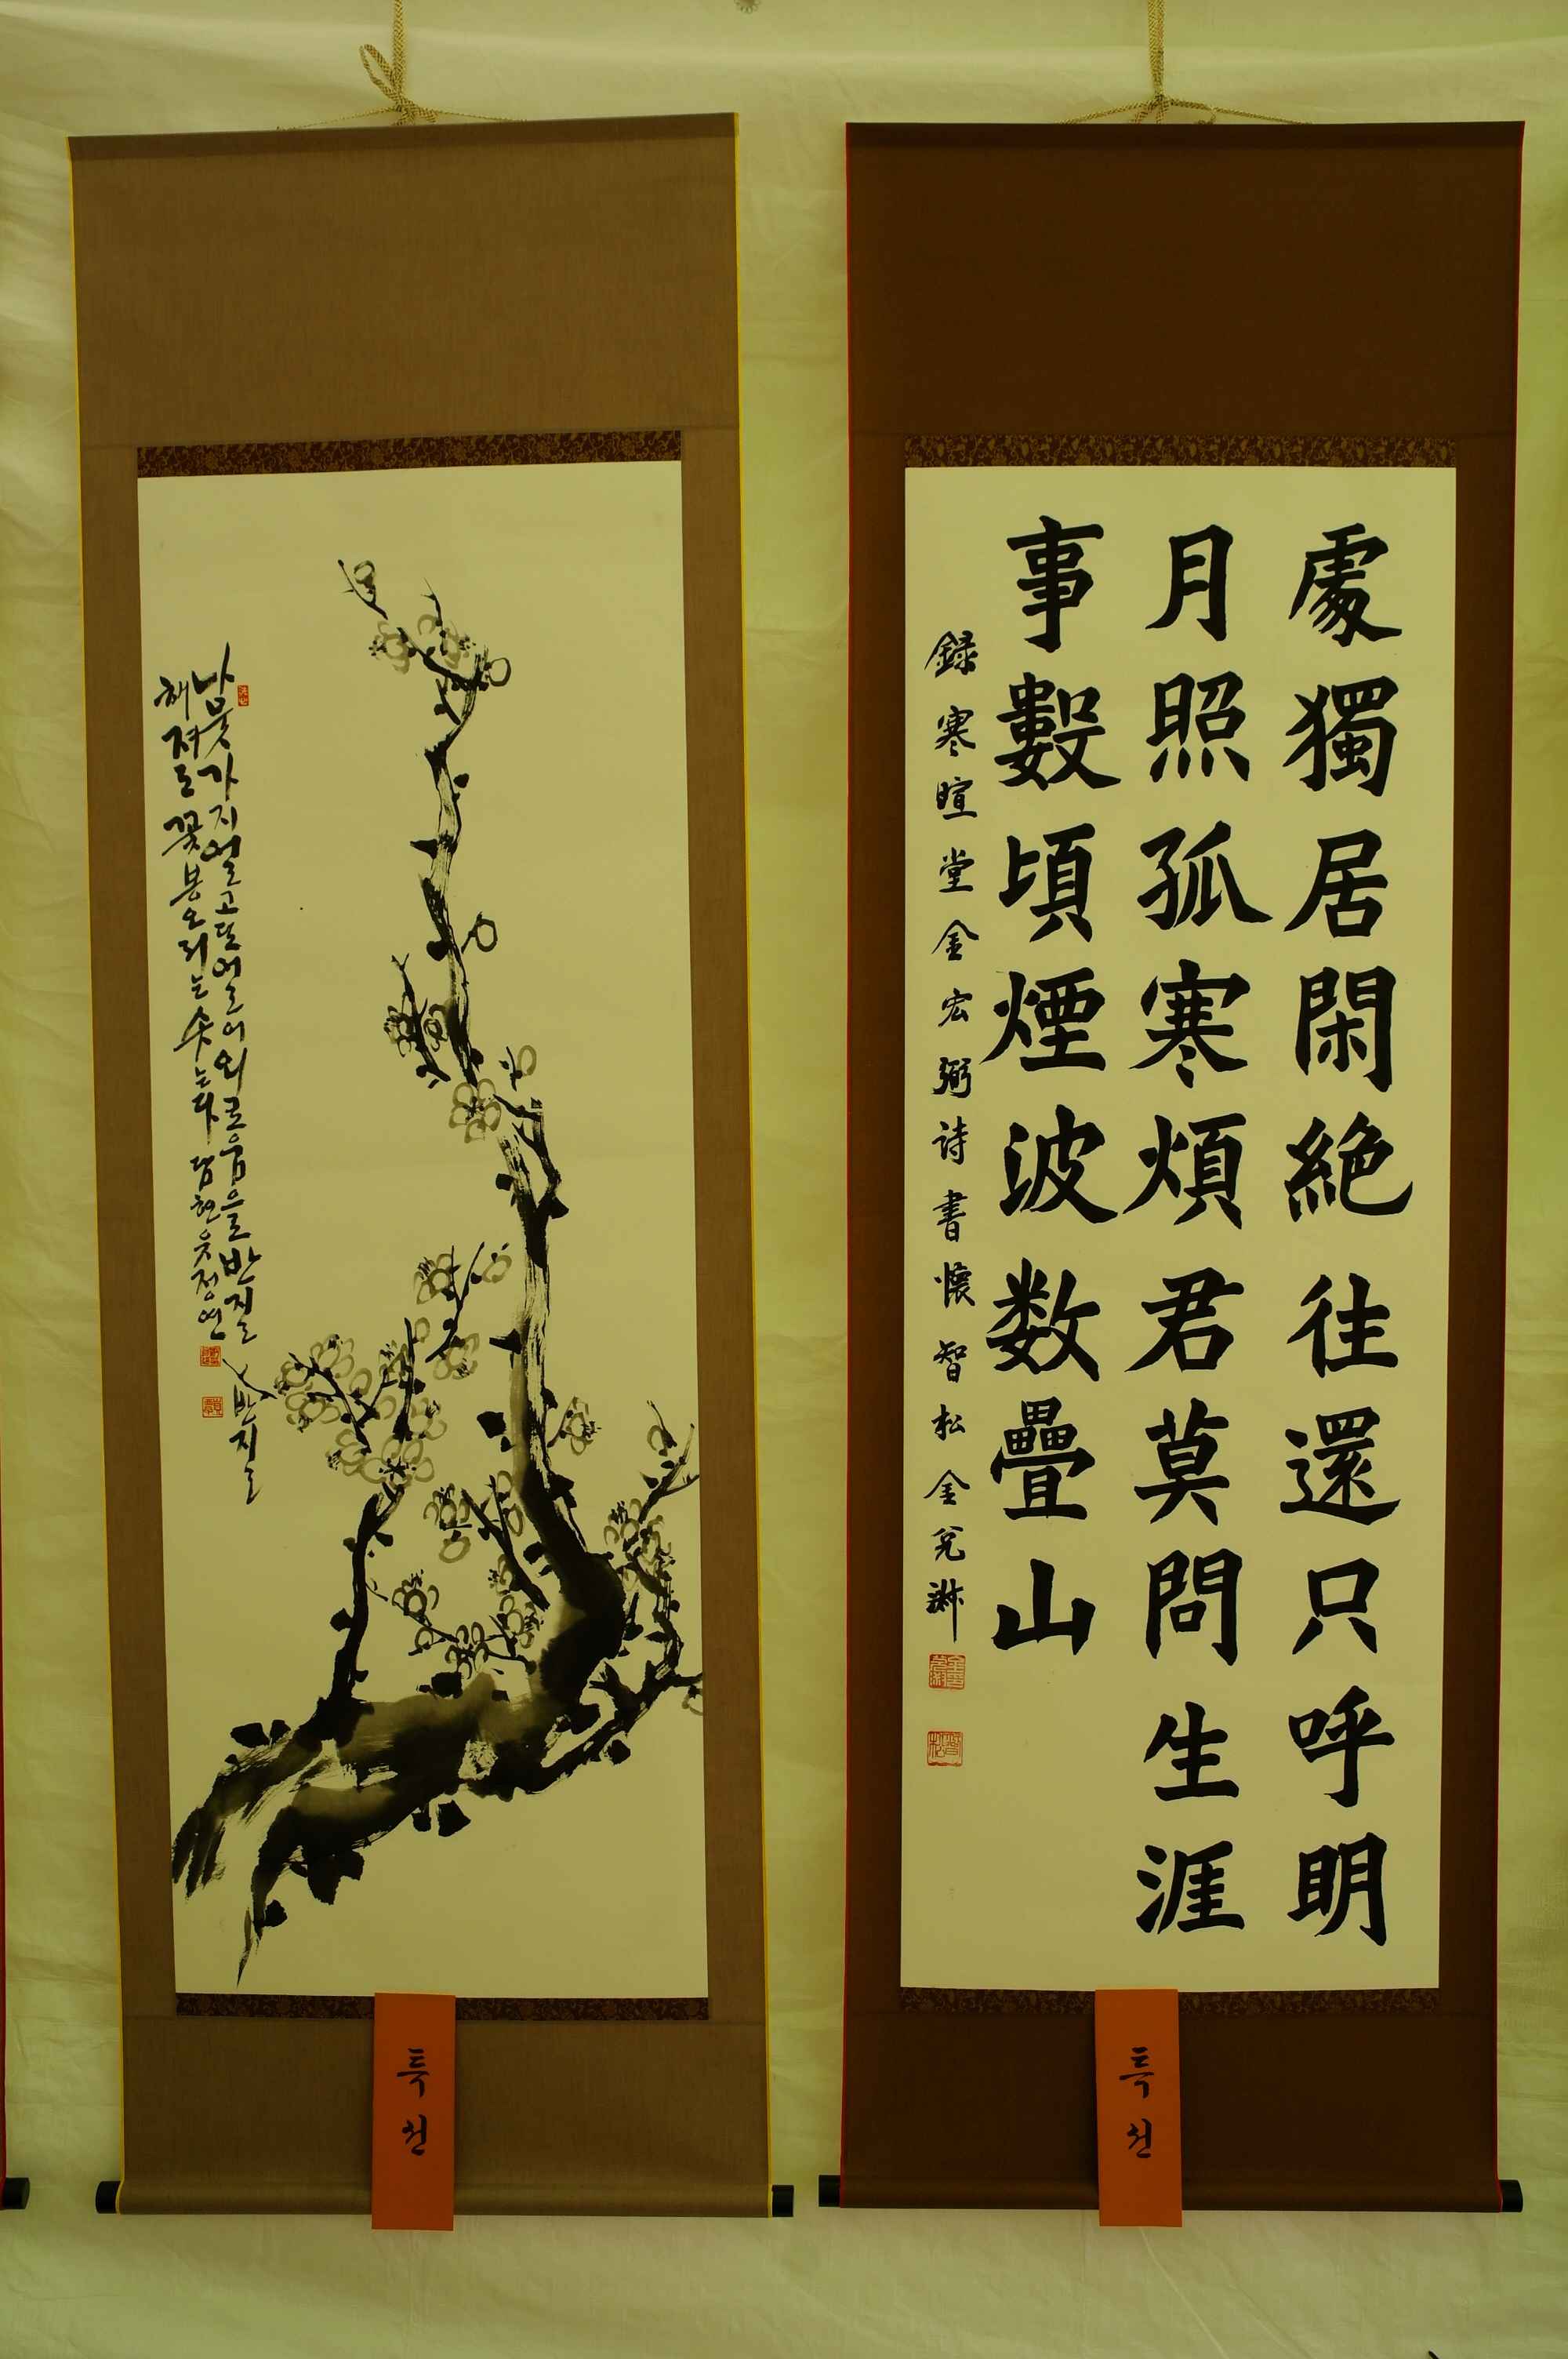 나뭇가지얼고또얼어외로움을반질반질
해져도꽃봉오리는솟는다 담헌윤정연
특선
處獨居閑絶往還只呼明
月照孤寒煩君莫問生涯
事數頃煙波数疊山
録寒暄堂金宏弼詩書懷 智松 金兌
특선